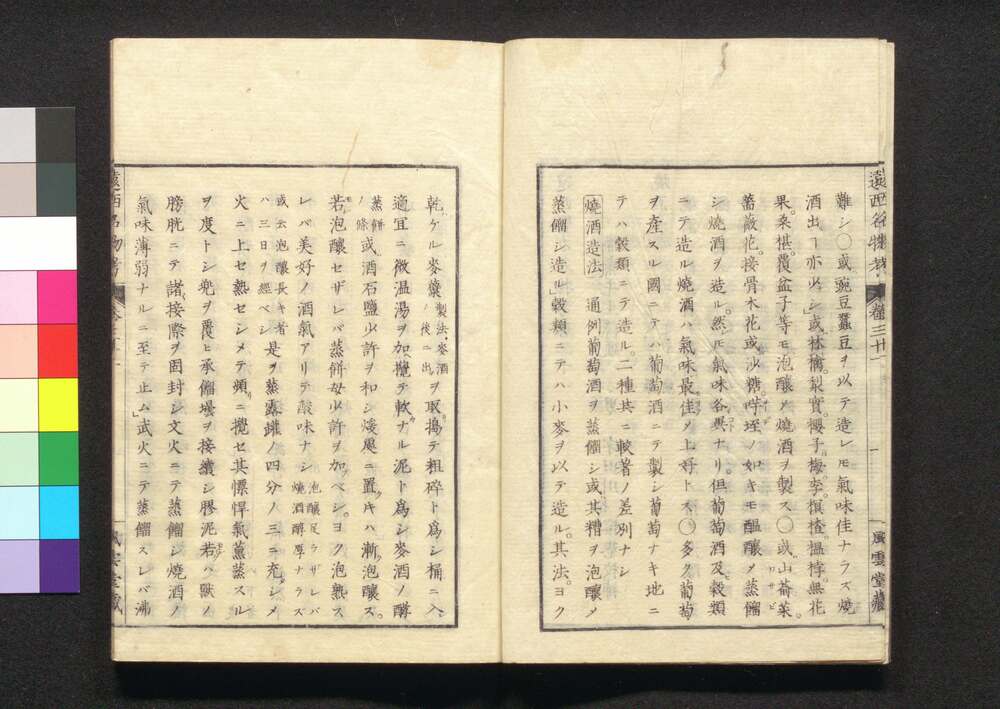 遠西名物考 巻三十一 一 風雲堂藏
難シ○或豌豆蠶豆ヲ以テ造レモ氣味佳ナラズ燒
酒出ー亦少シ」或林檎。梨實。櫻子。梅。李。榠樝。榲桲。無花
果。桑椹。覆盆子等モ泡釀メ燒酒ヲ製ス○或山萮菜
薔薇花。接骨木花或沙糖ノ如キモ醞釀メ蒸餾
シ燒酒ヲ造ル。然モ氣味各異ナリ。但葡萄酒及穀類
ニテ造ル燒酒ハ氣味最佳メ上好トス○多ク葡萄
ヲ産スル國ニテハ葡萄酒ニテ製シ葡萄ナキ地ニ
テハ穀類ニテ造ル。二種共ニ較著ノ差別ナシ
燒酒造法 通例葡萄酒ヲ蒸餾シ或其糟ヲ泡釀メ
蒸餾シ造ル」穀類ニテハ小麥ヲ以テ造ル。其法。ヨク
乾ケル麥糵製法麥酒ノ後ニ出ヲ取搗テ粗碎ト爲シ桶ニ入
適宜ニ微温湯ヲ加攪テ軟ナル泥ト爲シ麥酒ノ酵
蒸餅ノ條或酒石鹽少許ヲ和シ煖處ニ置キハ漸泡釀ス。
若泡釀セザレバ蒸餅母少許ヲ加ベシ。ヨク泡熟ス
レバ美好ノ酒氣アリテ酸味ナシ泡釀足ラザレバ燒酒醇厚ナラズ
或云泡釀長キ者ハ三日ヲ經ベシ是ヲ蒸露罐ノ四分ノ三ニ充シメ
火ニ上セ熱セシメテ頻ニ攪セ其慓悍氣薫蒸スル
ヲ度トシ兠ヲ覆ヒ承餾壜ヲ接續シ膠泥若ハ獸ノ
膀胱ニテ諸接際ヲ固封シ文火ニテ蒸餾シ燒酒ノ
氣味薄弱ナルニ至テ止ム」武火ニテ蒸餾スレバ沸